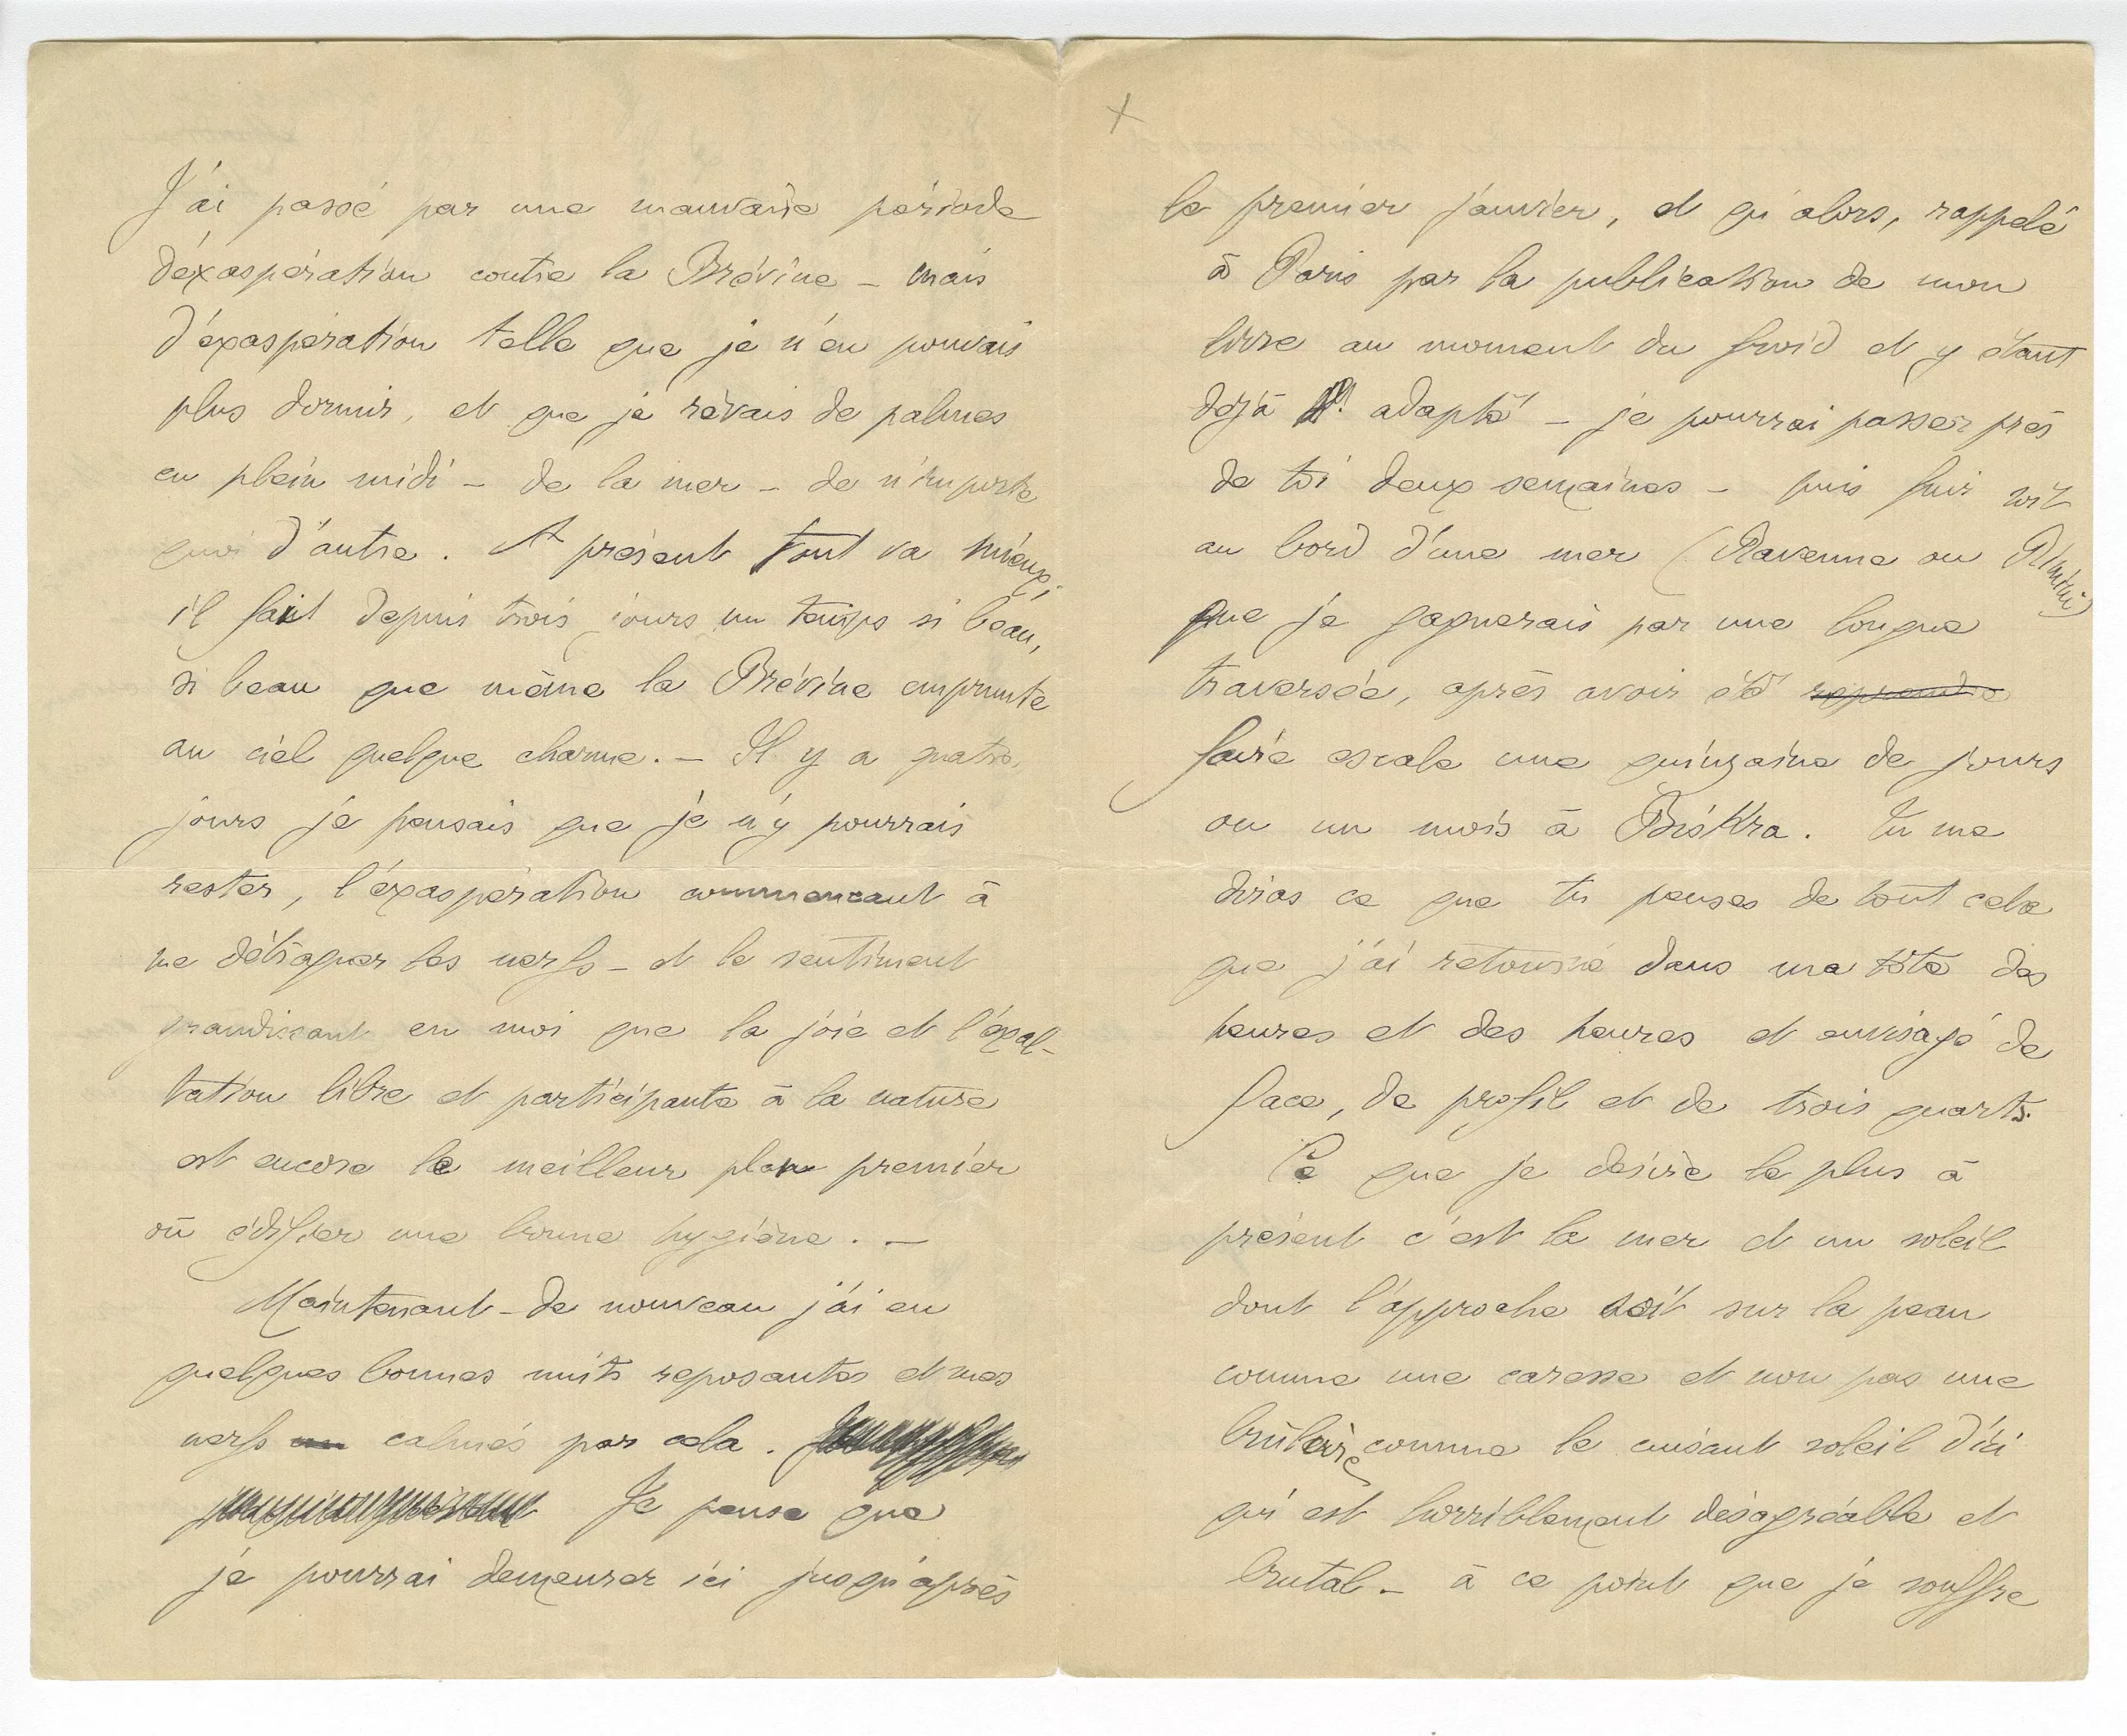 J'ai passé par une mauvaise période
d'éxaspération contre la Brévine – mais
d'éxaspération telle que je n'en pouvais
plus dormir, et que je rêvais de palmes
en plein midi – de la mer – de n'importe
quoi d'autre. A présent tout va mieux;
il fait depuis trois jours un temps si beau,
si beau que même la Brévine emprunte
au ciel quelque charme. – Il y a quatre
jours je pensais que je n'y pourrais
rester, l'éxaspération commencant à
me détraquer les nerfs – et le sentiment
grandissant en moi que la joie et l'éxal-
tation libre et participante à la nature
est encore le meilleur plan premier
où édifier une bonne hygiène. –
Maintenant – de nouveau j'ai eu
quelques bonnes nuits reposantes et mes
nerfs calmés par cela.
Je pense que
je pourrai demeurer ici jusqu'après
le premier janvier, et qu'alors, rappelé
à Paris par la publication de mon
livre au moment du froid et y étant
déjà adapté – je pourrai passer près
de toi deux semaines – puis fuir vit
au bord d'une mer (Ravenne ou Rimini)
que je gagnerais par une longue
traversée, après avoir été reprendre
faire escale une quinzaine de jours
ou un mois à Biskra. Tu me
diras ce que tu penses de tout cela
que j'ai retourné dans ma tête des
heures et des heures et envisagé de
face, de profil et de trois quarts.
Ce que je désire le plus à
présent c'est la mer et un soleil
dont l'approche soit sur la peau
comme une caresse et non pas une
brûlure comme le cuisant soleil d'ici
qui est horriblement désagréable et
brutal – à ce point que je souffre